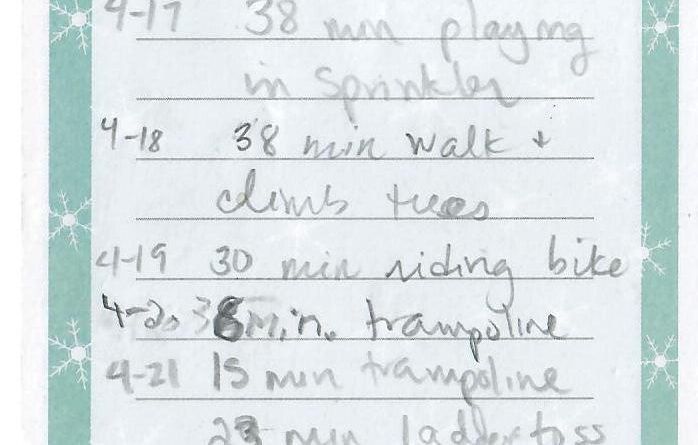 4-17 38 min playing
in Sprinkler
4-18 38 min walk +
climb trees
4-19 30 min riding bike
4-20 38 min. trampoline
4-21 15 min trampoline
23 min ladder toss